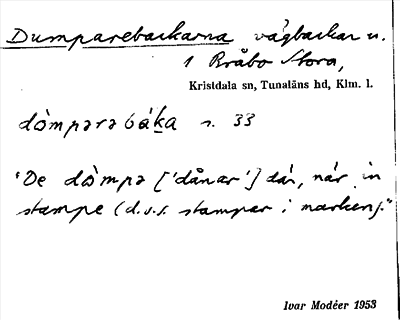 Dumparebackarna vägbackar u.
1 Bråbo Stora,
Kristdala sn, Tunaläns hd, Klm. l.
dòmpərəbáka s. 33
"De dòmpə ['dånar'] där, när in
stampe (d.v.s. stampar i marken)."
Ivar Modéer 1953